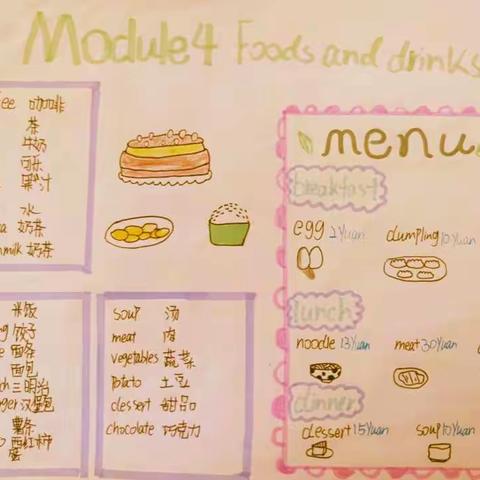 Module4 Foods and drinks
ee 咖啡
茶
牛奶
可乐
果汁
水
a 奶茶
milk 奶茶
米饭
ng 饺子
e 面条
面包
ch 三明治
ger 汉堡包
薯条
o 西红柿
蛋
soup 汤
meat 肉
vegetables 蔬菜
potato 土豆
dessert 甜品
chocolate 巧克力
menu
breakfast
egg 2Yuan dumpling 10Yuan
lunch
noodle 13Yuan meat 30Yuan
dinner
dessert 15Yuan soup 10Yuan